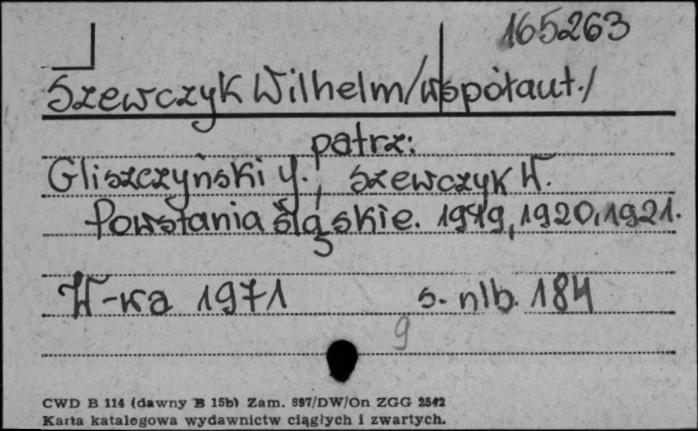 165263
Szewczyk Wilhelm/współaut./
patrz:
Gliszczyński Y., Szewczyk W.
Powstania śląskie. 1919, 1920, 1921.
W-wa 1971 s. nlb. 184
9
CWD B 114 (dawny B 15b) Zam. 897/DW/On ZGG 2542
Karta katalogowa wydawnictw ciągłych i zwartych.